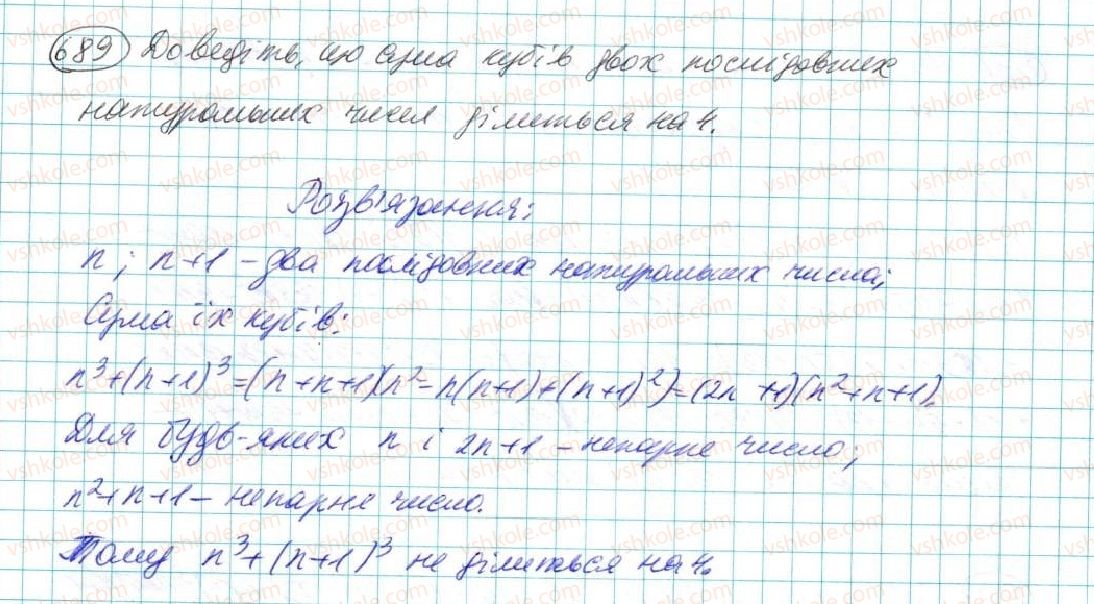 689 Доведіть, що сума кубів двох послідовних
натуральних чисел ділиться на 4.
Розв'язання:
n; n+1 – два послідовних натуральних числа;
Сума їх кубів:
n³+(n+1)³=(n+n+1)(n²=n(n+1)+(n+1)²)=(2n+1)(n²+n+1).
Для будь-яких n і 2n+1 – непарне число;
n²+n+1 – непарне число.
Тому n³+(n+1)³ не ділиться на 4.